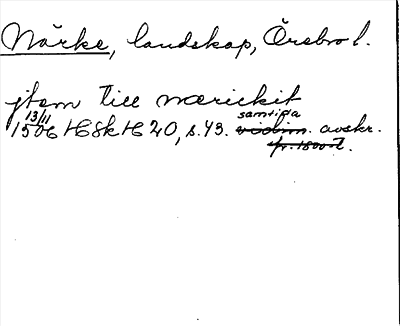 Närke, landskap, Örebro l.
jtem till nærickit
13/11
samtida
1506 HSkH 20, s. 43. vidim. avskr.
fr. 1500-t.